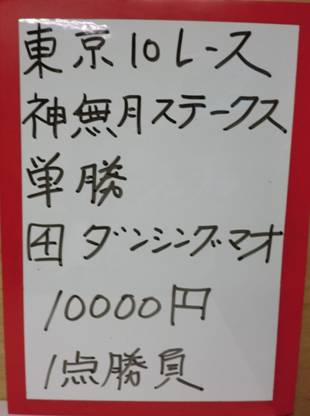 東京10レース
神無月ステークス
単勝
4 ダンシングマオ
10000円
1点勝負